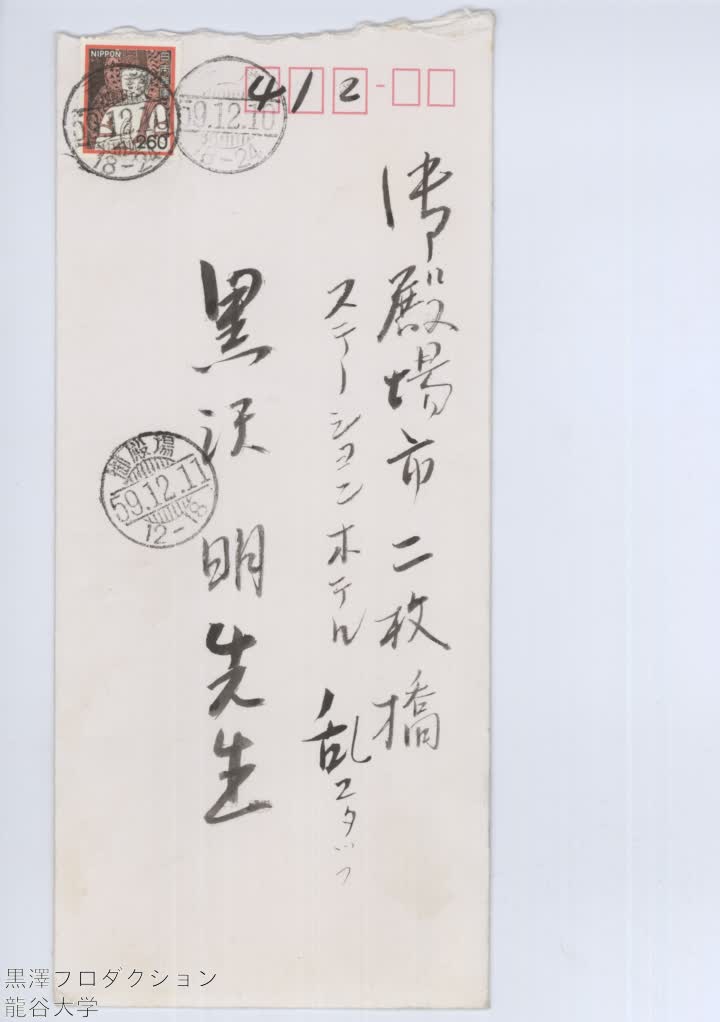 NIPPON
260
59.12.10
18-24
59.12.10
8-24
412
御殿場市二枚橋
ステーションホテル 乱スタッフ
黒沢明先生
御殿場
59.12.11
12-18
黒澤フロダクション
龍谷大学